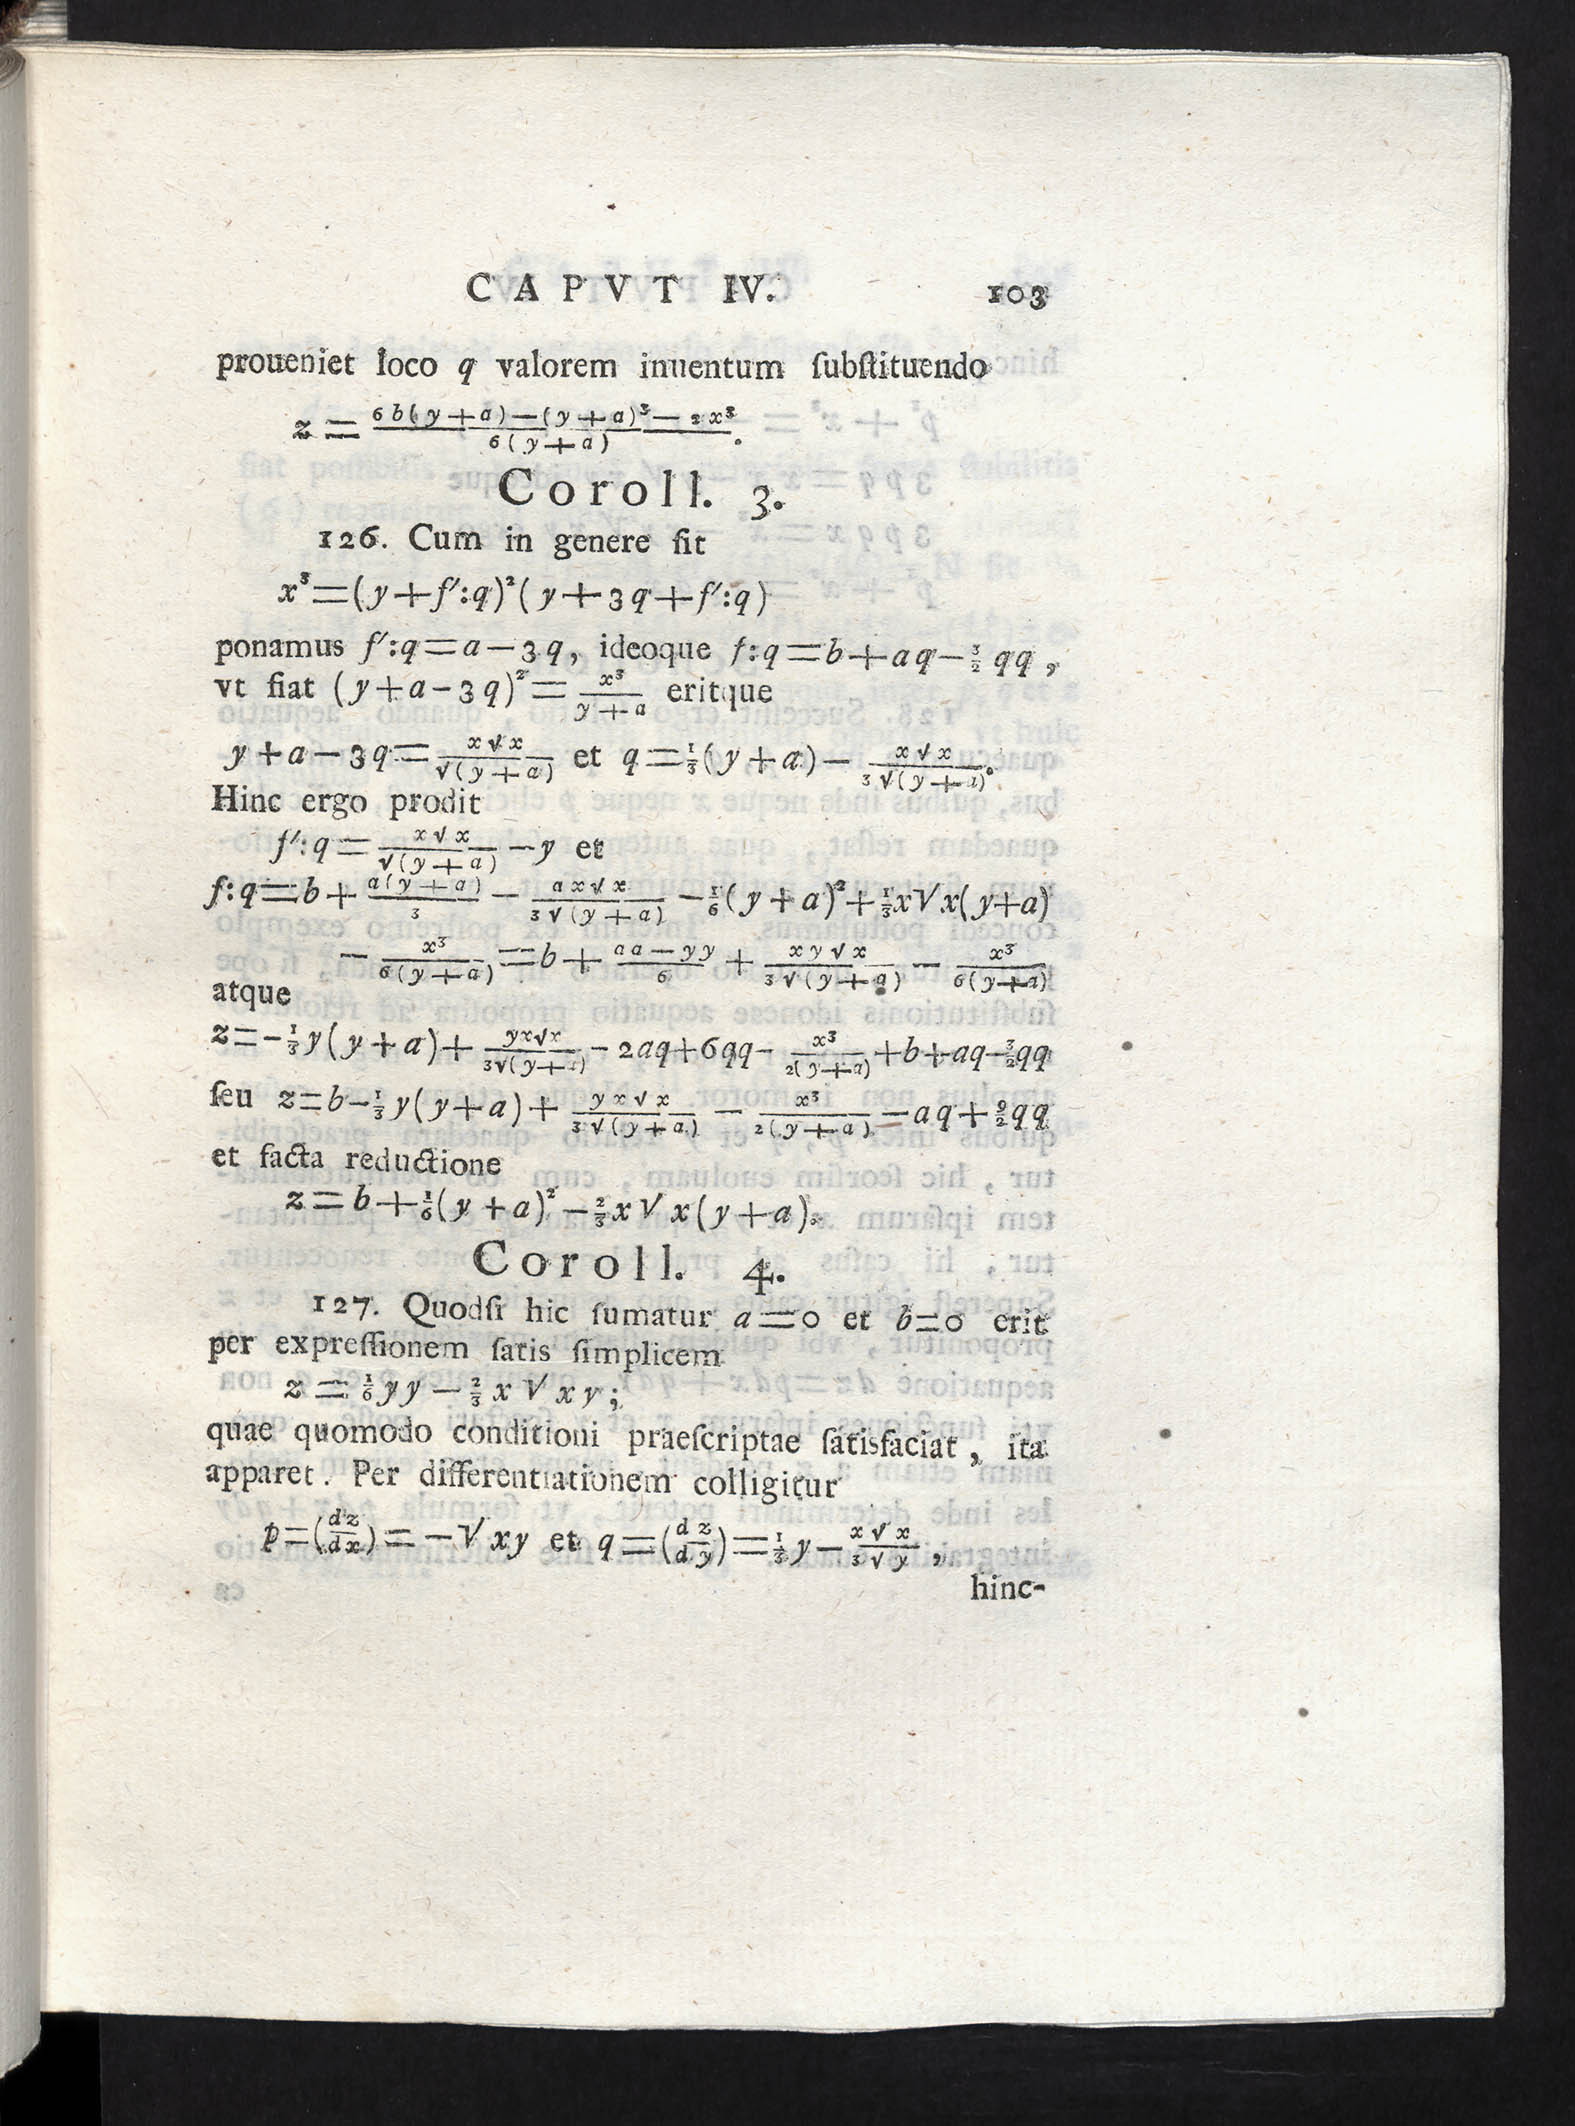 CAPVT IV. 103
proueniet loco q valorem inuentum ſubſtituendo
z = \frac{6b(y+a)-(y+a)^3-2x^3}{6(y+a)}.
Coroll. 3.
126. Cum in genere ſit
x^3=(y+f':q)^2(y+3q+f':q)
ponamus f':q=a-3q, ideoque f:q=b+aq-\frac{3}{2}qq,
vt fiat (y+a-3q)^2=\frac{x^3}{y+a} eritque
y+a-3q=\frac{x√x}{√(y+a)} et q=\frac{1}{3}(y+a)-\frac{x√x}{3√(y+a)}.
Hinc ergo prodit
f':q=\frac{x√x}{√(y+a)}-y et
f:q=b+\frac{a(y+a)}{3}-\frac{ax√x}{3√(y+a)}-\frac{1}{6}(y+a)^2+\frac{1}{3}x√x(y+a)
-\frac{x^3}{6(y+a)}=b+\frac{aa-yy}{6}+\frac{xy√x}{3√(y+a)}-\frac{x^3}{6(y+a)}
atque
z=-\frac{1}{3}y(y+a)+\frac{yx√x}{3√(y+a)}-2aq+6qq-\frac{x^3}{2(y+a)}+b+aq-\frac{3}{2}qq
ſeu z=b-\frac{1}{3}y(y+a)+\frac{yx√x}{3√(y+a)}-\frac{x^3}{2(y+a)}-aq+\frac{9}{2}qq
et facta reductione
z=b+\frac{1}{6}(y+a)^2-\frac{2}{3}x√x(y+a).
Coroll. 4.
127. Quodſi hic ſumatur a=0 et b=0 erit
per expreſſionem ſatis ſimplicem
z=\frac{1}{6}yy-\frac{2}{3}x√xy;
quae quomodo conditioni praeſcriptae ſatisfaciat, ita
apparet. Per differentiationem colligitur
p=(\frac{dz}{dx})=-√xy et q=(\frac{dz}{dy})=\frac{1}{3}y-\frac{x√x}{3√y},
hinc-